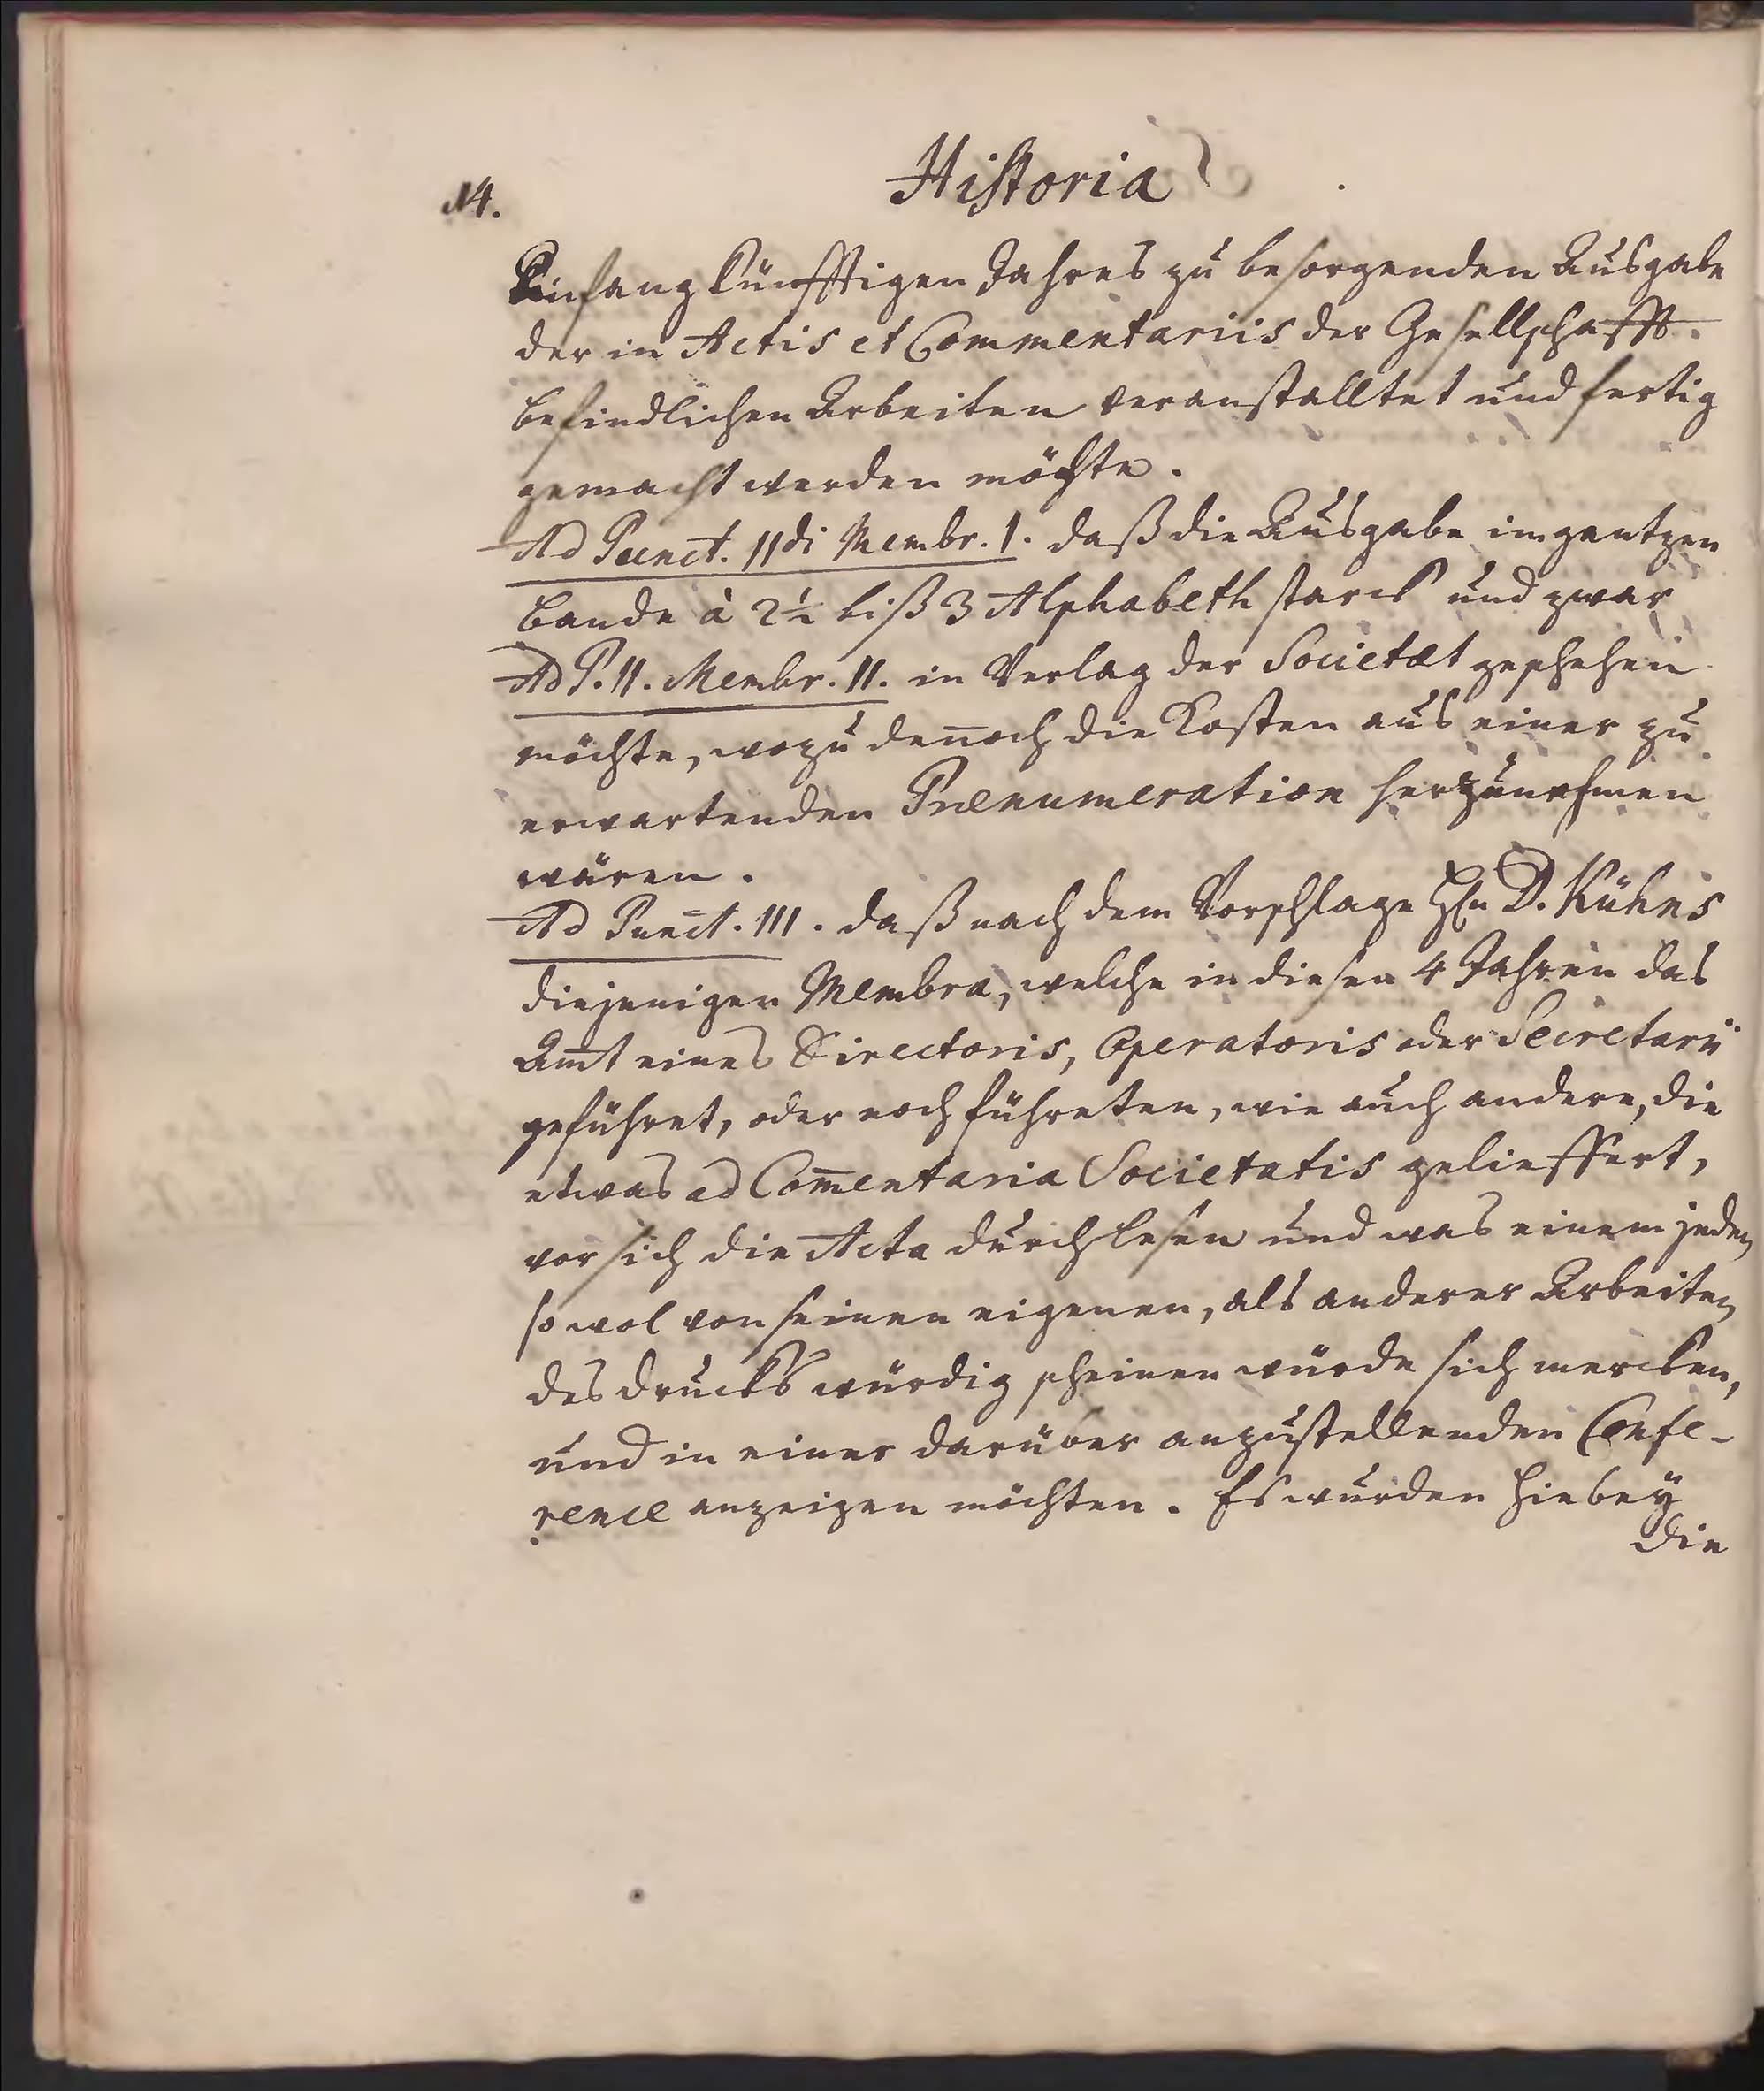 14.
Historia
Anfang künfftigen Jahres zu besorgenden Ausgabe
der in Actis et Commentariis der Gesellschafft
befindlichen Arbeiten veranstalltet und fertig
gemacht werden möchte.
Ad Punct. IIdi Membr. I. daß die Ausgabe im gantzen
Bande à 2½ biß 3 Alphabeth starck und zwar
Ad P. II. Membr. II. in Verlag der Societæt geschehen
möchte, wozu deñoch die Kosten aus einer zu
erwartenden Prænumeration herzunehmen
wären.
Ad Punct. III. daß nach dem Vorschlage Hn D. Kühns
diejenigen Membra, welche in diesen 4 Jahren das
Am̃t eines Directoris, Operatoris oder Secretarii
geführet, oder noch führeten, wie auch andere, die
etwas ad Com̃entaria Societatis gelieffert,
vor sich die Acta durchlesen und was einem jeden
so wol von seinen eigenen, als anderer Arbeiten
des Drucks würdig scheinen würde sich mercken,
und in einer darüber anzustellenden Confe-
rence anzeigen möchten. Es wurden hiebey
die